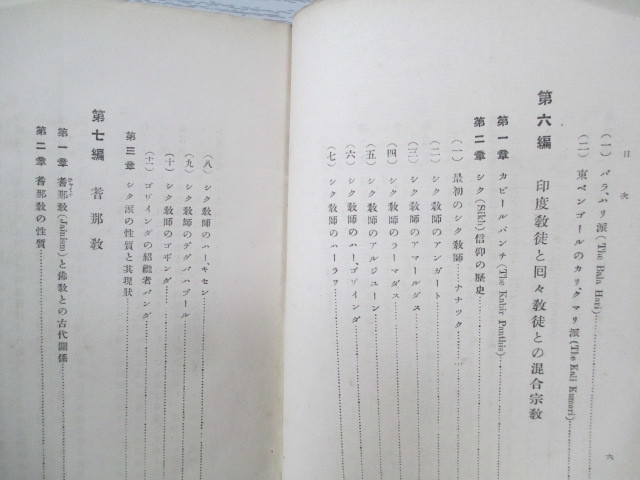 目次
(一) バラ、ハリ派 (The Bala Hari)
(二) 東ベンゴールのカリ、クマリ派 (The Kali Kumari)
第六編 印度教徒と囘々教徒との混合宗教
第一章 カビールパンチ (The Kabir Panthis)
第二章 シク (Sikh) 信仰の歴史
(一) 最初のシク教師……ナナック
(二) シク教師のアンガート
(三) シク教師のアマールダス
(四) シク教師のラーマダス
(五) シク教師のアルジューン
(六) シク教師のハー、ゴヴインダ
(七) シク教師のハーラワ
六
(八) シク教師のハー、キセン
(九) シク教師のテグバハヅール
(十) シク教師のゴギンダ
(十一) ゴヴインダの紹繼者バンダ
第三章 シク派の性質と其現狀
第七編 耆那教
第一章 耆那教 (Jainism) と佛教との古代關係
第二章 耆那教の性質